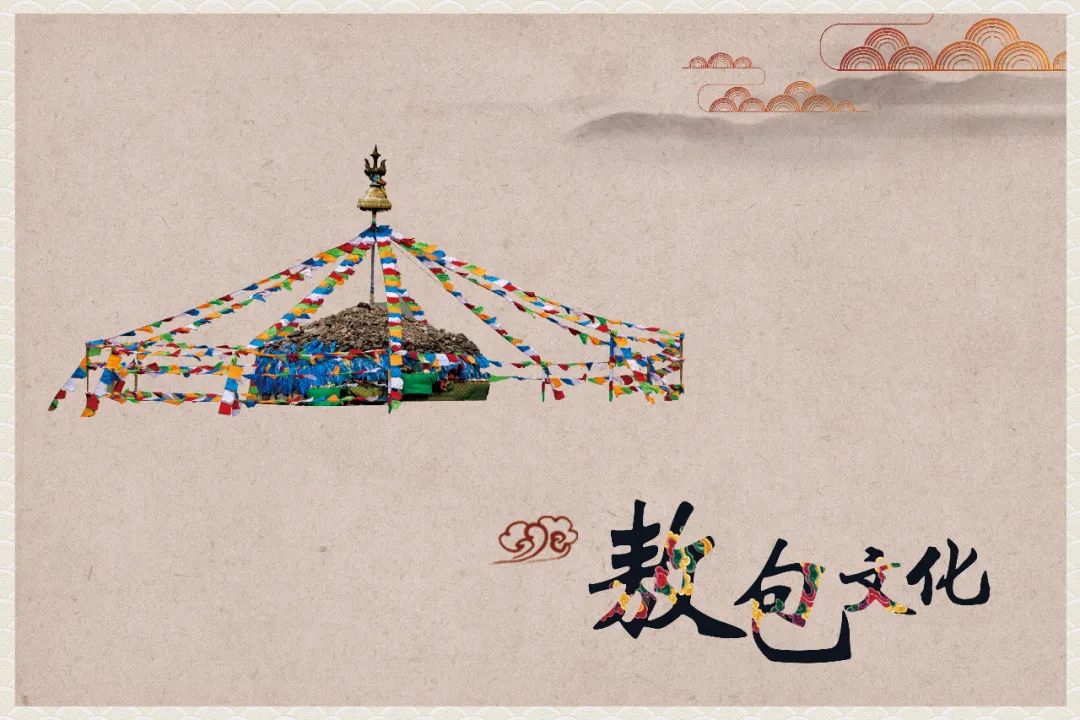 敖包文化